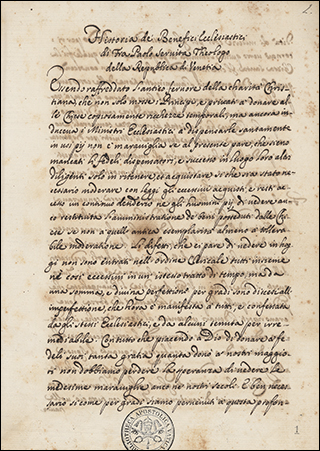 Historia de Benefici Ecclesiastici
di Fra Paolo Servita Theologo
della Republica di Venetia
Essendo raffreddato l'antico fervore della charità Chris-
tiana che non solo mosse i Principi, e privati a donare alle
Chiese copiosamente richezze temporali, ma ancora in-
duceva i Ministri Ecclesiastici a dispensarle santamente
in usi pij non è maraviglia se al presente, pare, sieno
mancati fedeli dispensatori, e successi in luogo loro altri
diligenti solo in ritenere, et acquistare si che ora stato ne-
cessario moderare con legge gli eccessivi acquisti, e resti ac-
ceso un continuo desiderio ne gli huomini pij di vedere
restituita l'administratione de beni posseduti dalle Chie-
se se non a quell'antica esemplarità almeno a tollera-
bile moderatione. Li difetti, che ci pare di vedere in hog-
gi non sono entrati nell'ordine Clericale tutti insieme
ne così eccessivi in un istesso tratto di tempo, ma da
una somma, e divina perfettione per gradi sono discesi all'
imperfettione, che hora è manifesta a tutti, e confessata
da gli stessi Ecclesiastici, e da alcuni tenuta per irre-
mediabile. Contutto che piacendo a Dio di donare a fe-
deli suoi tanta gratia quanta donò a nostri maggio-
ri non dobbiamo perdere la speranza di vedere la
medesime maraviglie anco ne nostri secoli. E ben neces-
sario si come per gradi siamo pervenuti a questa profon-
1